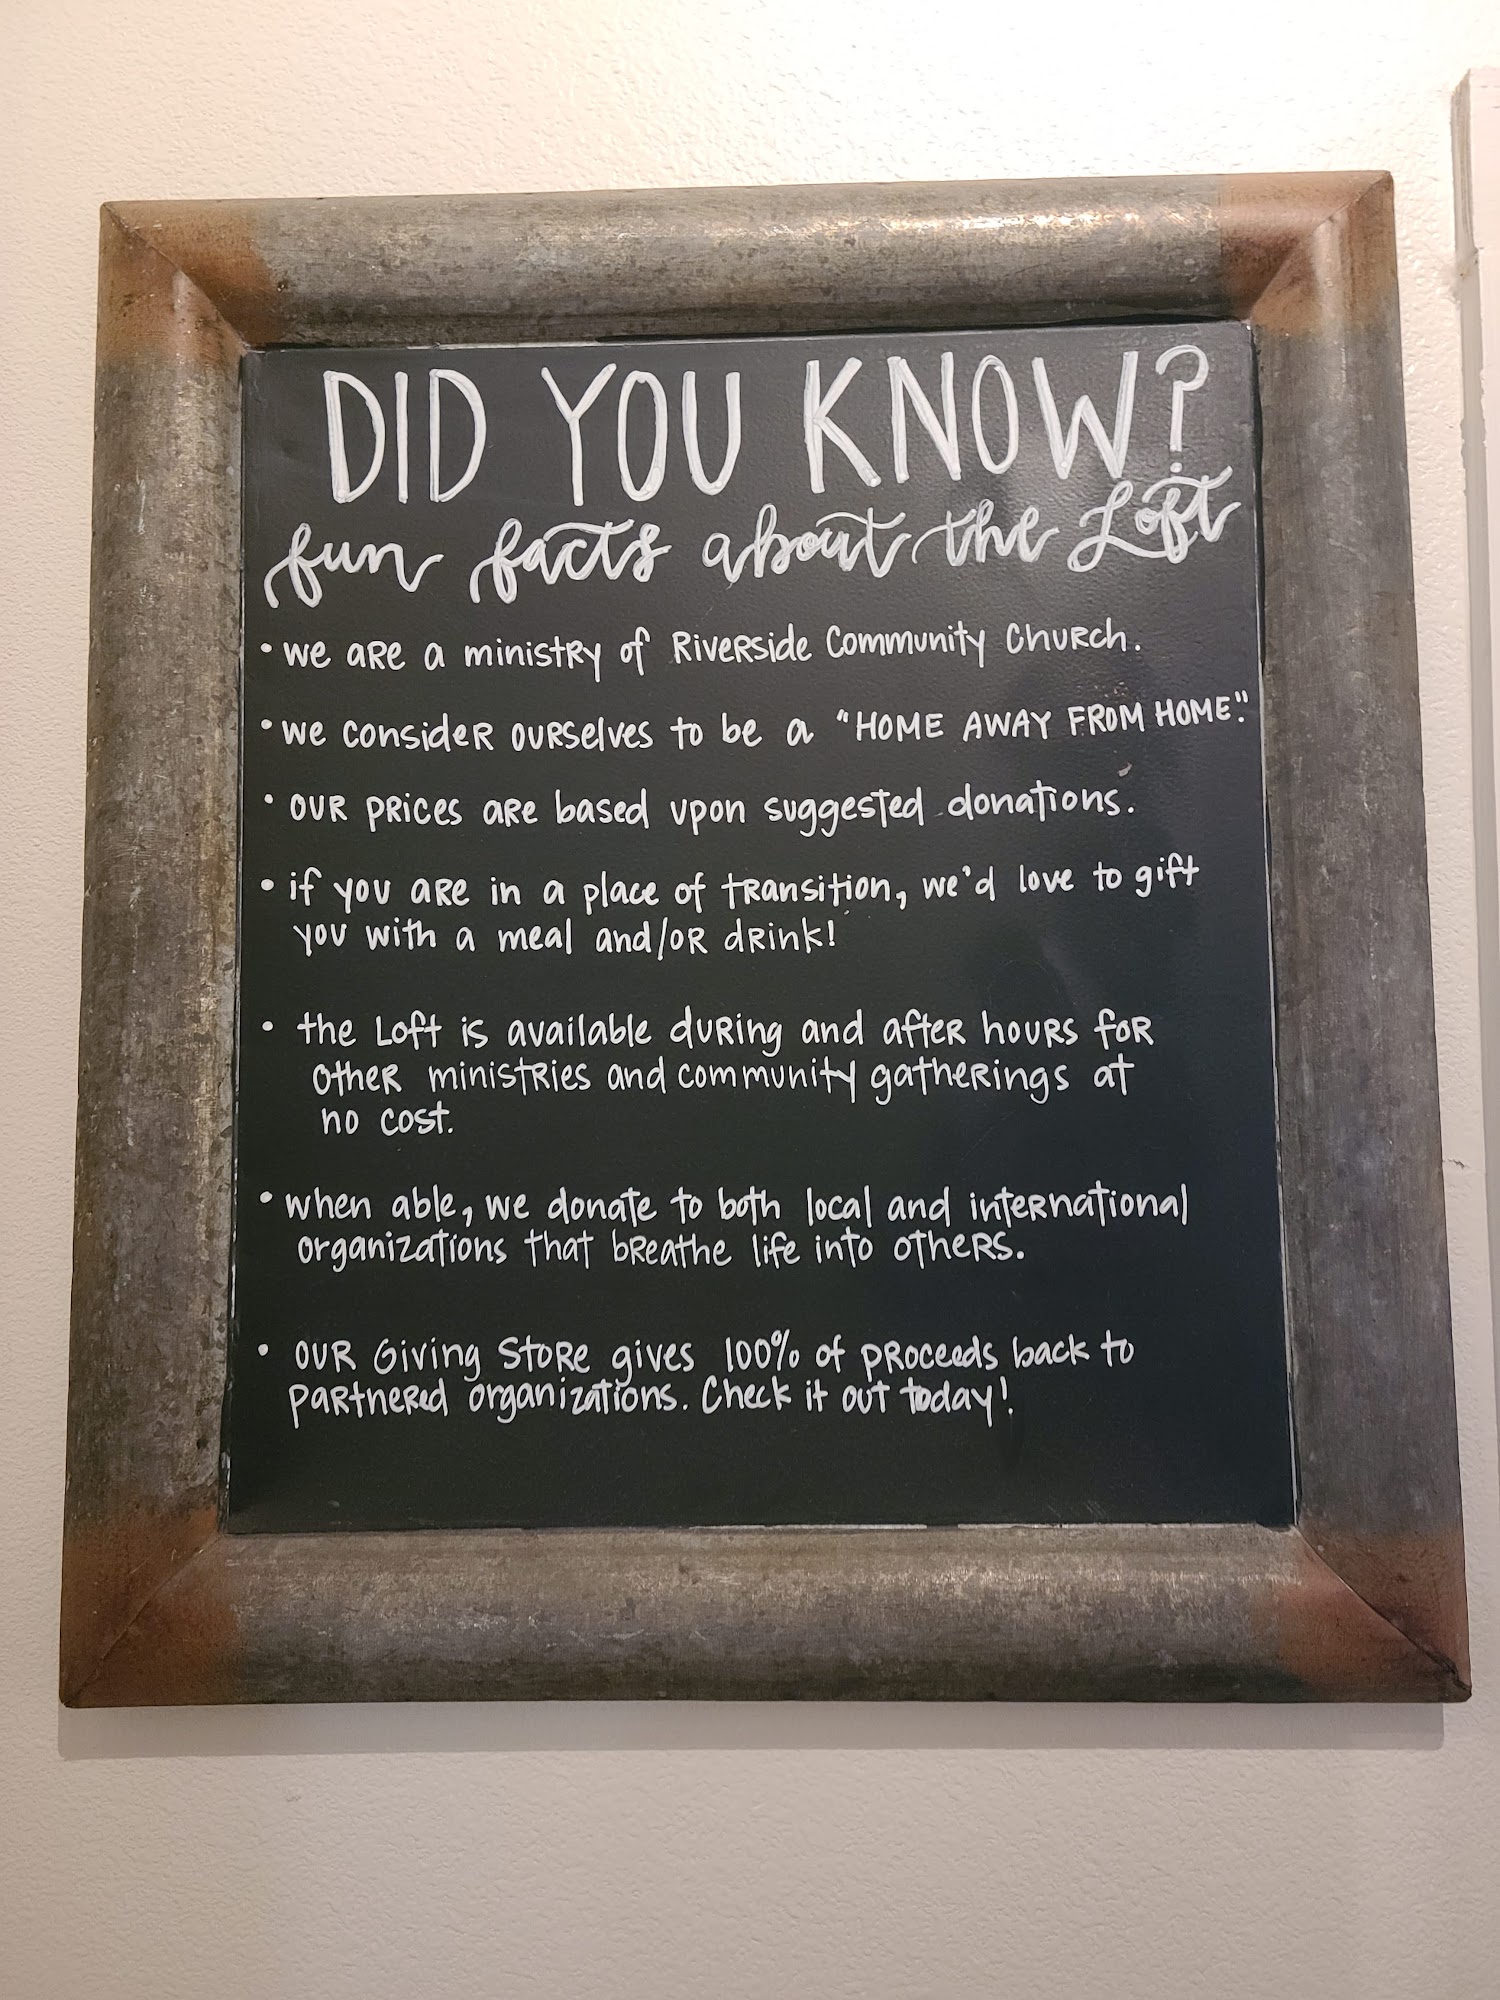 DID YOU KNOW?
fun facts about the Loft
• we are a ministry of Riverside Community Church.
• we consider ourselves to be a "HOME AWAY FROM HOME."
• our prices are based upon suggested donations.
• if you are in a place of transition, we'd love to gift
you with a meal and/or drink!
• the Loft is available during and after hours for
other ministries and community gatherings at
no cost.
• when able, we donate to both local and international
organizations that breathe life into others.
• our Giving Store gives 100% of proceeds back to
partnered organizations. Check it out today!